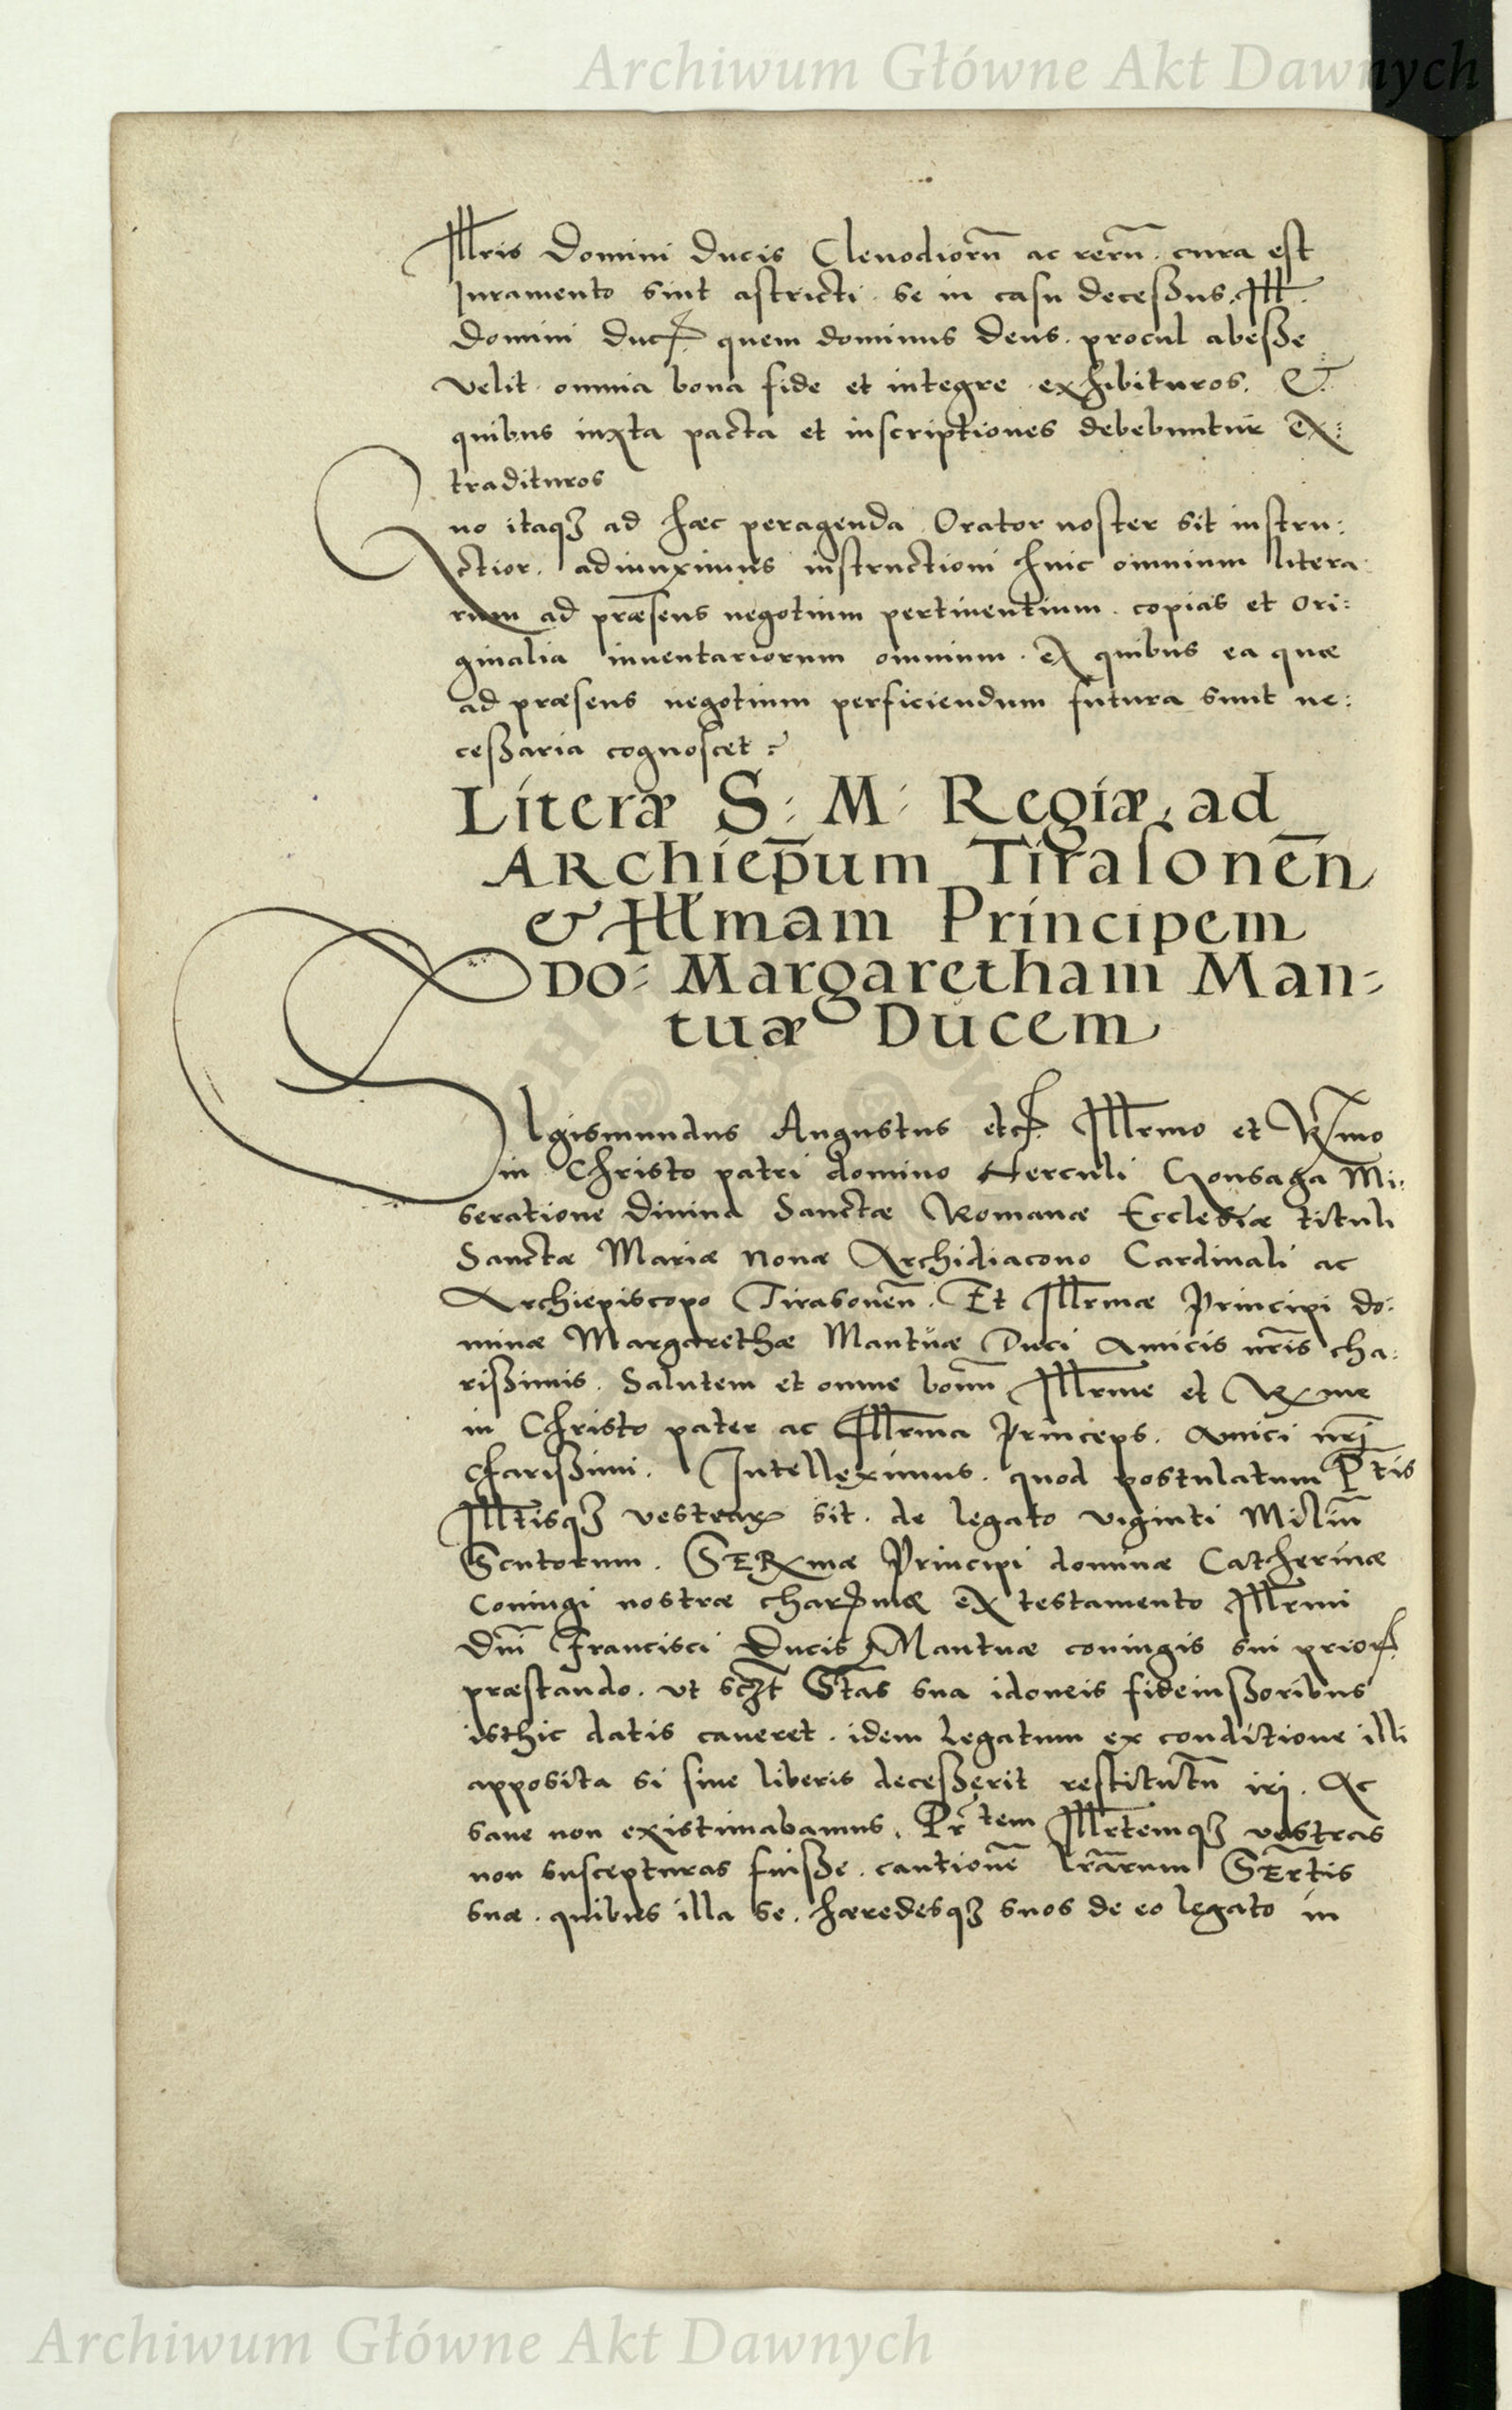 Archiwum Główne Akt Dawnych
Illris Domini Ducis Clenodiorū ac rerū. cura est
Iuramento sint astricti. se in casu decessus. Ill.
domini duc. quem dominus Deus. procul abesse
velit. omnia bona fide et integre exhibituros. Et
quibus iuxta pacta et inscriptiones debebuntur Ex:
tradituros
Quo itaqꝫ ad hæc peragenda Orator noster sit instru:
ctior. adiunximus instructioni huic omnium litera
rum ad præsens negotium pertinentium. copias et ori:
ginalia inuentariorum omnium. ex quibus ea quæ
ad præsens negotium perficiendum futura sunt ne:
cessaria cognoscet
Literæ S: M: Regiæ, ad
ARchiep̄um Tirasonen̄
& Illmam Principem
DO: Margaretham Man:
tuæ Ducem
SIgismundus Augustus etc. Illrmo et Rmo
in Christo patri domino Herculi Gonsaga Mi:
seratione diuina Sanctæ Romanæ Ecclesiæ tituli
Sanctæ Mariæ nouæ Archidiacono Cardinali ac
Archiepiscopo Tirasonen̄. Et Illrmæ Principi do:
minæ Margarethæ Mantuæ Duci Amicis nr̄is cha:
rissimis. Salutem et omne bonū Illrme et Rme
in Christo pater ac Illrma Princeps. Amici nr̄i
charissimi. Intelleximus. quod postulatum P tis
Illtisqꝫ vestrar sit. de legato viginti Miliū
Scutorum. SERmæ Principi dominæ Catherinæ
Coniugi nostræ charmæ ex testamento Illrmi
Dn̄i Francisci Ducis Mantuæ coniugis sui prior.
præstando. vt scꝫt Stas sua idoneis fideiussoribus
isthic datis caueret. idem legatum ex conditione illi
apposita si sine liberis decesserit restitutū iri. Ac
sane non existimabamus. Pr̄tem Illrtemqꝫ vestras
non suscepturas fuisse. cautionē lr̄arum SErtis
suæ. quibus illa se. hæredesqꝫ suos de eo legato in
Archiwum Główne Akt Dawnych